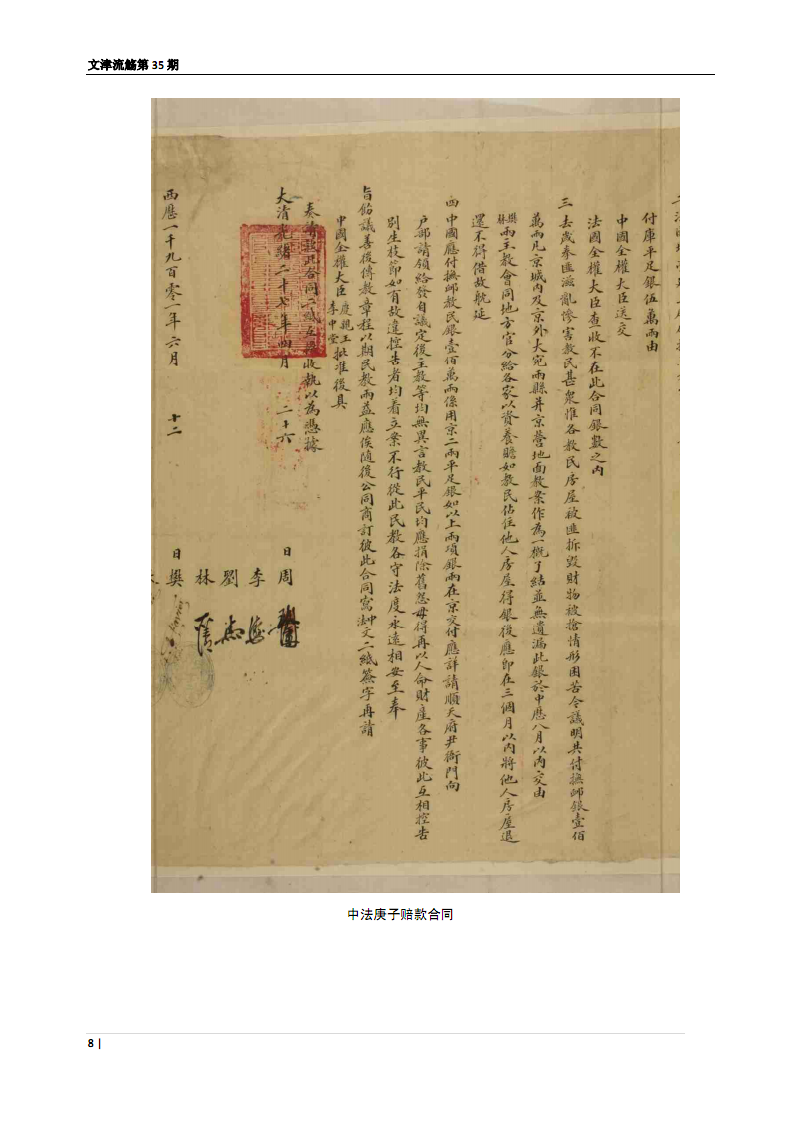 文津流觞第 35 期
付庫平足銀伍萬兩由
中國全權大臣送交
法國全權大臣查收不在此合同銀數之內
三 去歲拳匪滋亂慘害教民甚衆惟各教民房屋被匪拆毀財物被搶情形困苦今議明共付撫卹銀壹佰
萬兩凡京城內及京外大宛兩縣并京營地面教案作為一概了結並無遺漏此銀於中歷八月以內交由
樊林兩主教會同地方官分給各家以資養贍如教民佔住他人房屋得銀後應即在三個月以內將他人房屋退
還不得借故躭延
四 中國應付撫卹教民銀壹佰萬兩係用京二兩平足銀如以上兩項銀兩在京交付應詳請順天府尹衙門向
户部請領給發自議定後主教等均無異言教民平民均應捐除舊怨毋得再以人命財產各事彼此互相控告
別生枝節如有故違控告者均着立案不行從此民教各守法度永遠相安至奉
旨飭議善後傳教章程以期民教兩益應俟隨後公同商訂彼此合同寫法中文二紙簽字再請
中國全權大臣慶親王李中堂批准後具
奏請 此合同二紙互 收執以為憑據
大清光緒二十七年四月 二十六 日 周
李
劉
林
西歷一千九百零一年六月 十二 日 樊
中法庚子赔款合同
8 |